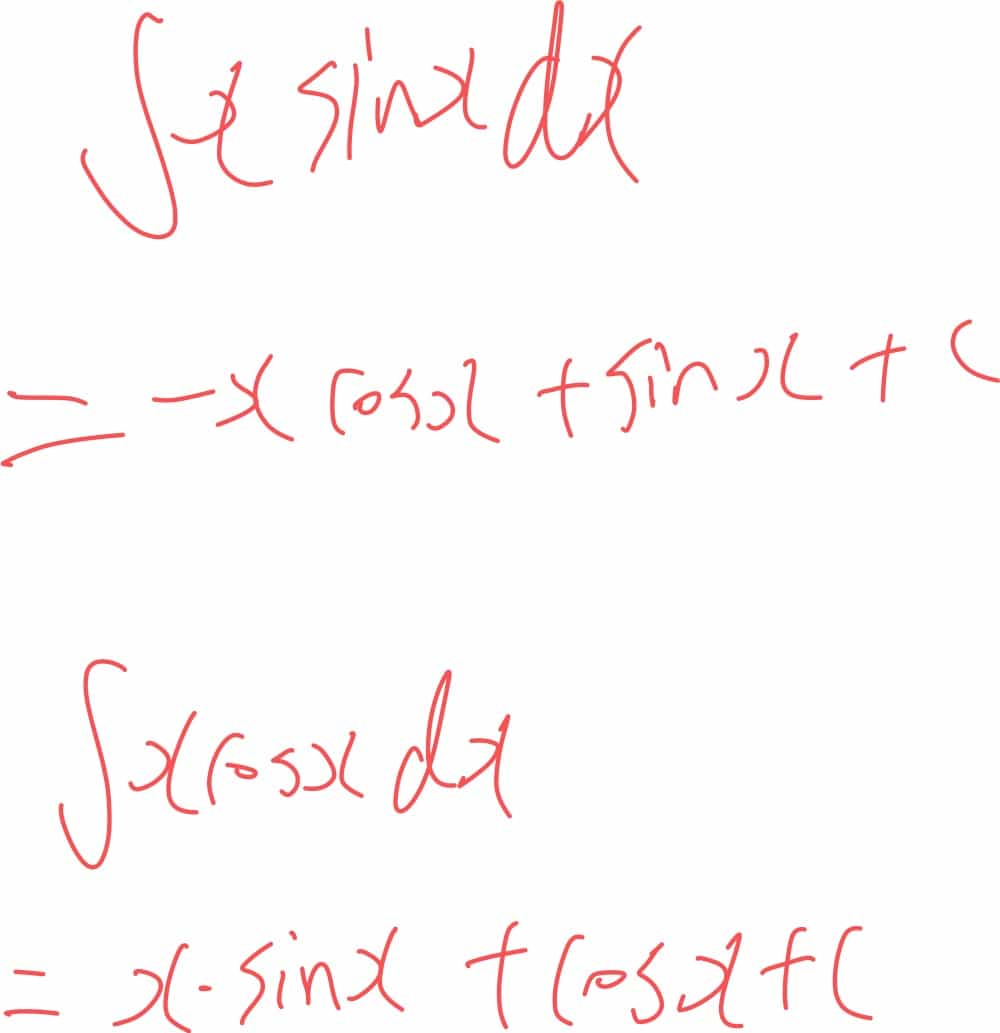 ∫x sinx dx
= -x cosx + sinx + C
∫xcosx dx
= x·sinx + cosx + C